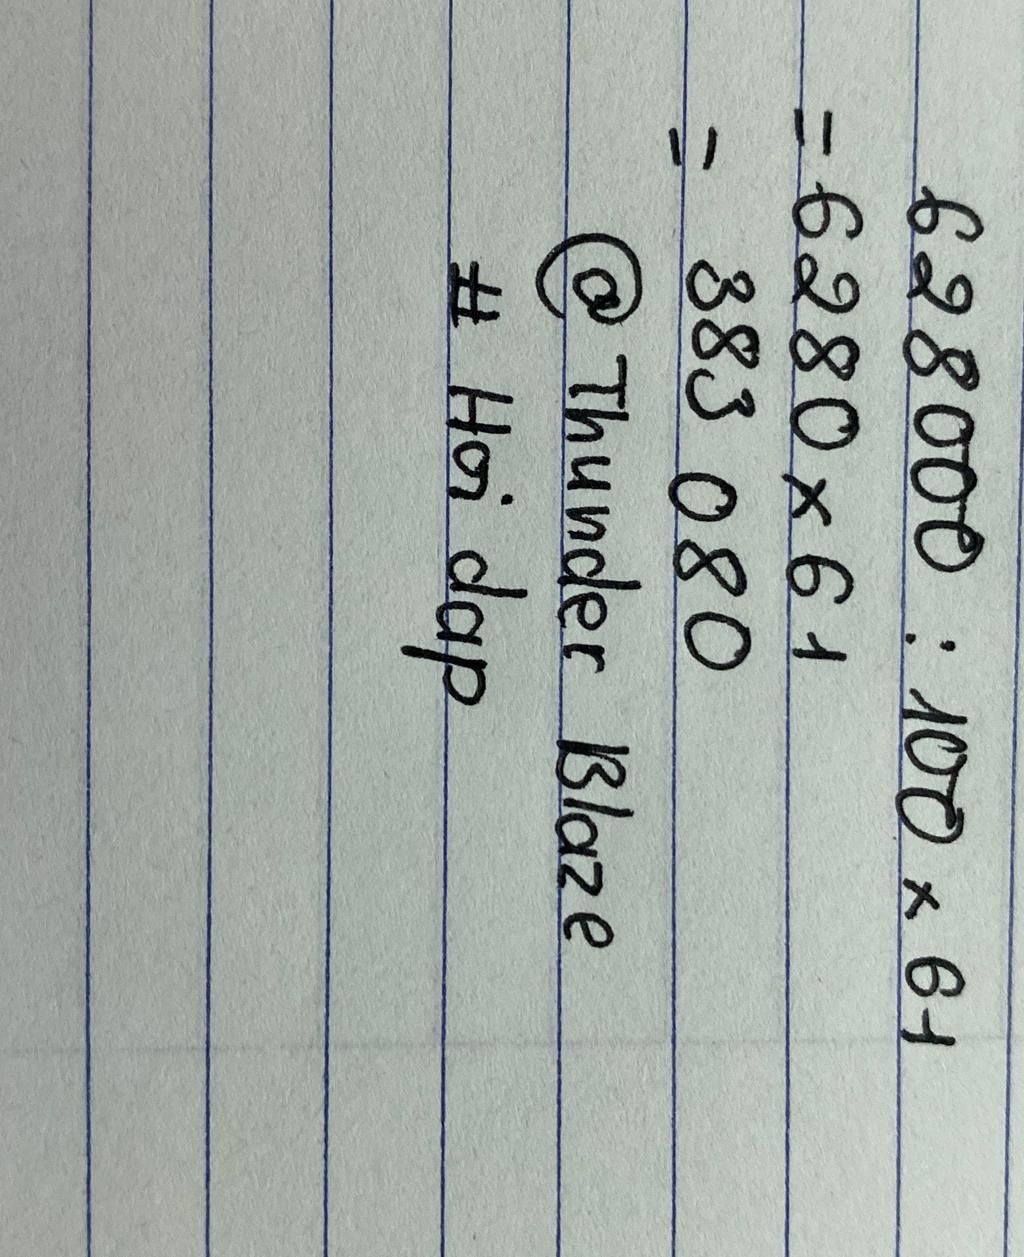 628000 : 100 x 61
= 6280 x 61
= 383 080
@Thunder Blaze
# Hoi dap